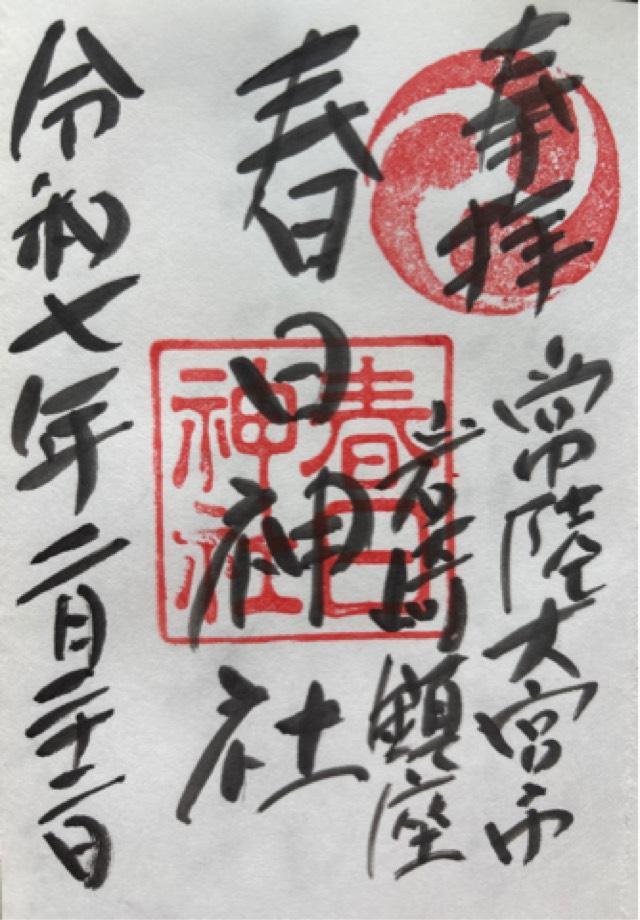 奉拝
常陸大宮市
岩崎鎮座
春日神社
春日
神社
令和七年二月二十二日